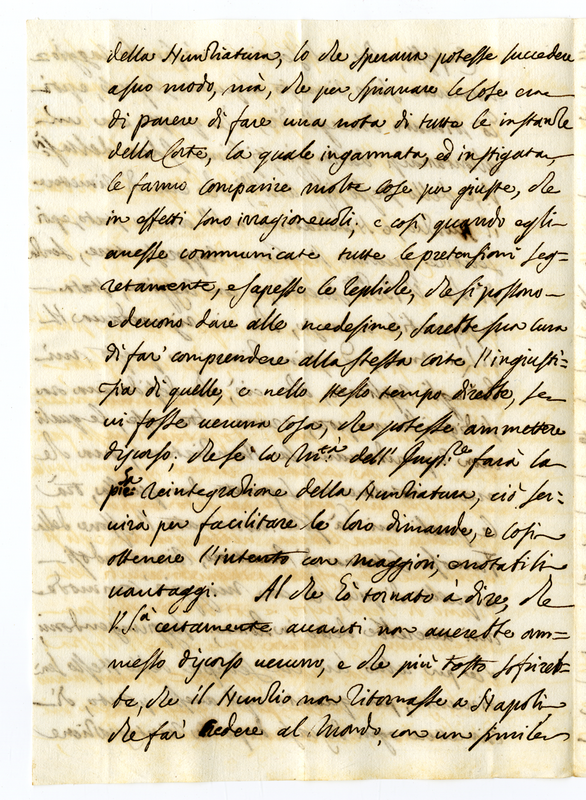 della Nuntiatura, lo che sperava potesse succedere
a suo modo, mà, che per spianare le Cose era
di parere di fare una nota di tutte le instanze
della Corte, la quale ingannata, ed instigata,
le fanno comparire molte cose per giuste, che
in effetti sono irragionevoli; e così quando egli
avesse communicate tutte le pretensioni seg-
retamente, e sapesse le Repliche, che si possono
e devono dare alle medesime, sarebbe sua cura
di far' comprendere alla stessa corte l'ingiusti-
zia di quelle, e nello stesso tempo direbbe, se
vi fosse veruna cosa, che potesse ammettere
discorso; che se la M.tà dell' Imp.re farà la
Reintegratione della Nuntiatura, ciò ser-
virà per facilitare le loro dimande, e così
ottenere l'intento con maggiori, e notabili
vantaggi. Al che hò tornato à dire, che
V. S.tà certamente avanti non averebbe am-
messo discorso veruno, e che più tosto soffrireb-
be, che il Nuntio non ritornasse a Napoli,
che far' credere al Mondo, con un simile